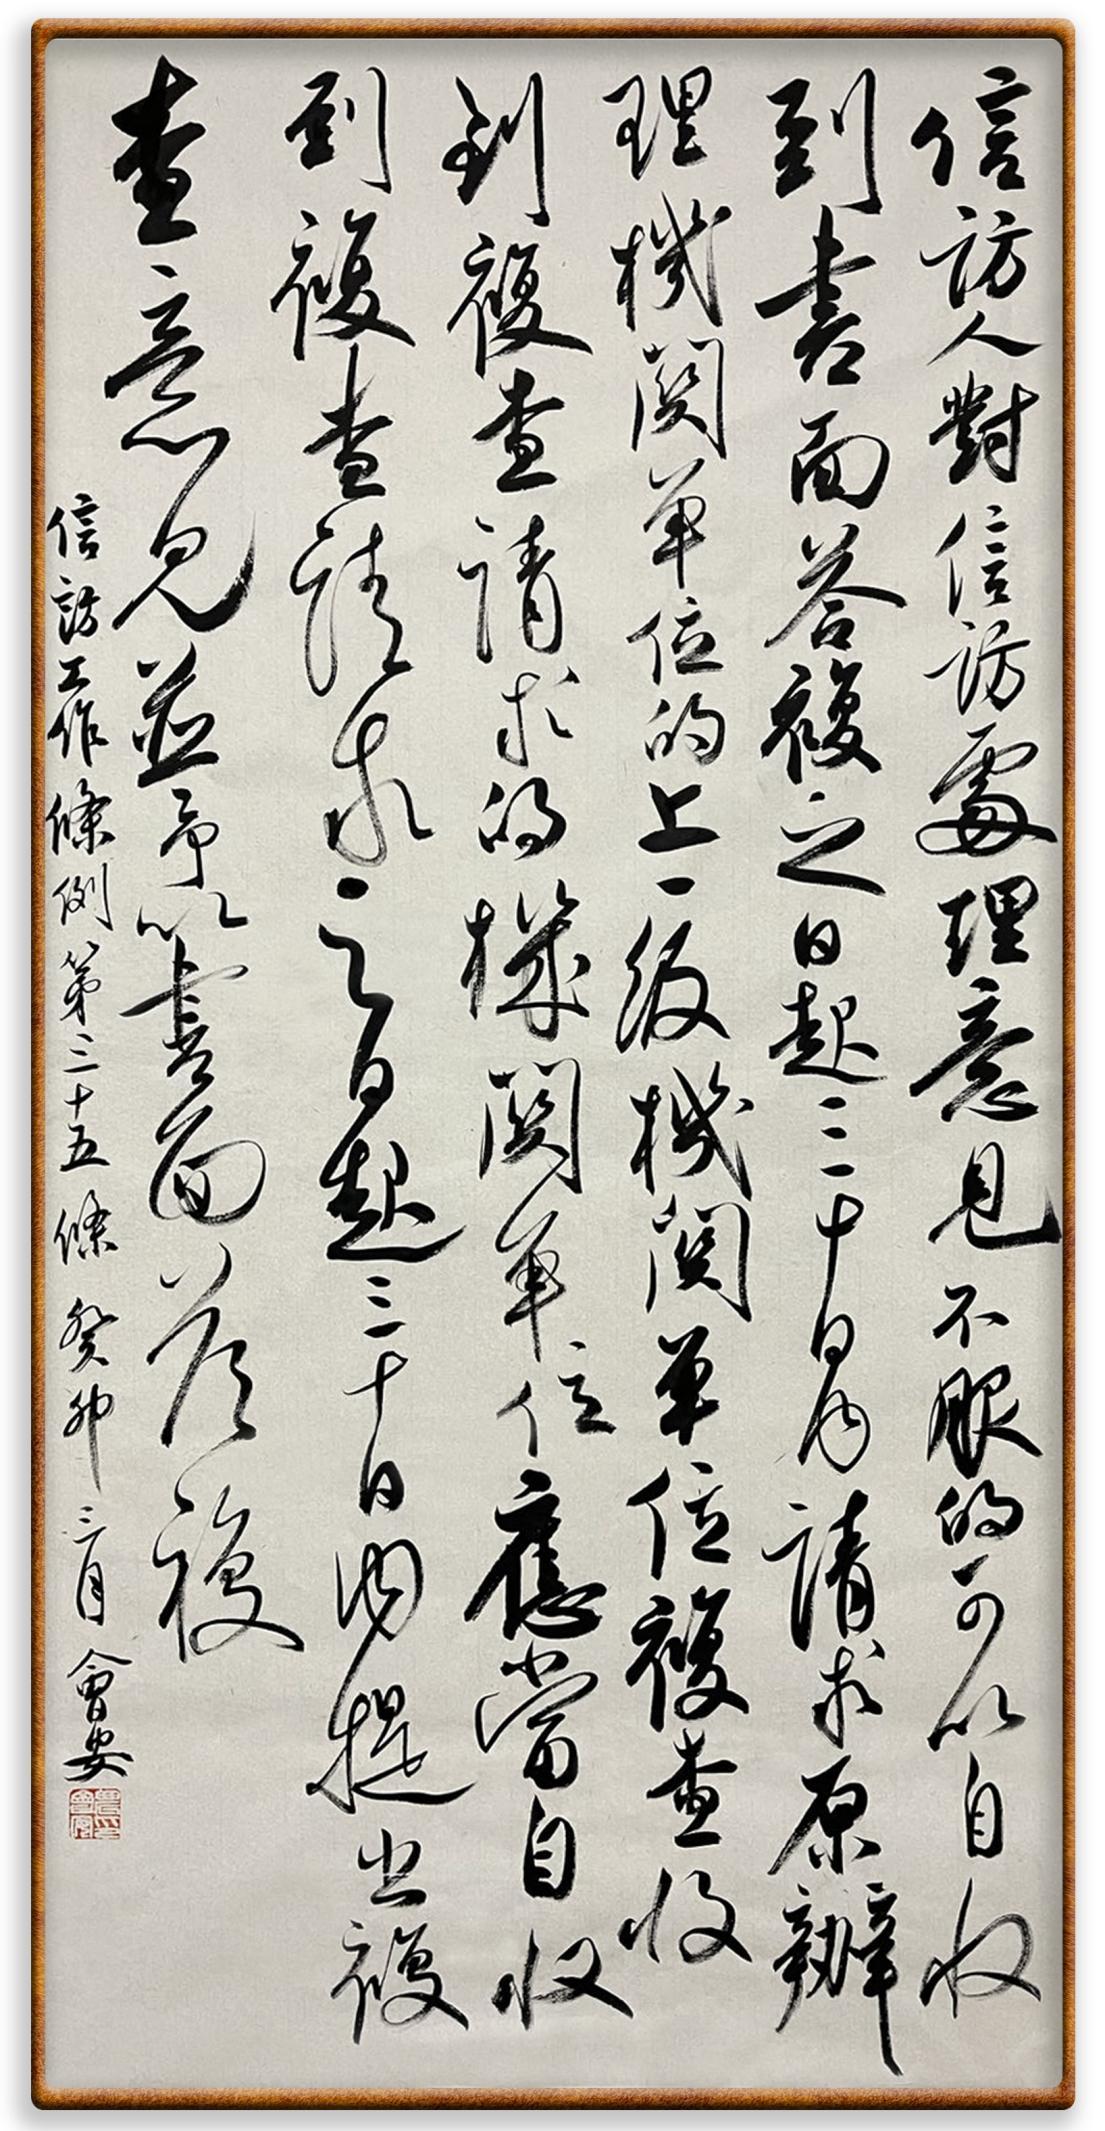 信訪人對信訪處理意見不服的可以自收
到書面答複之日起三十日内請求原辦
理機関单位的上一级機関单位複查收
到複查請求的機関单位應當自收
到複查請求之日起三十日内提出複
查意見並予以書面答複
信訪工作條例第三十五條 癸卯三月 會安